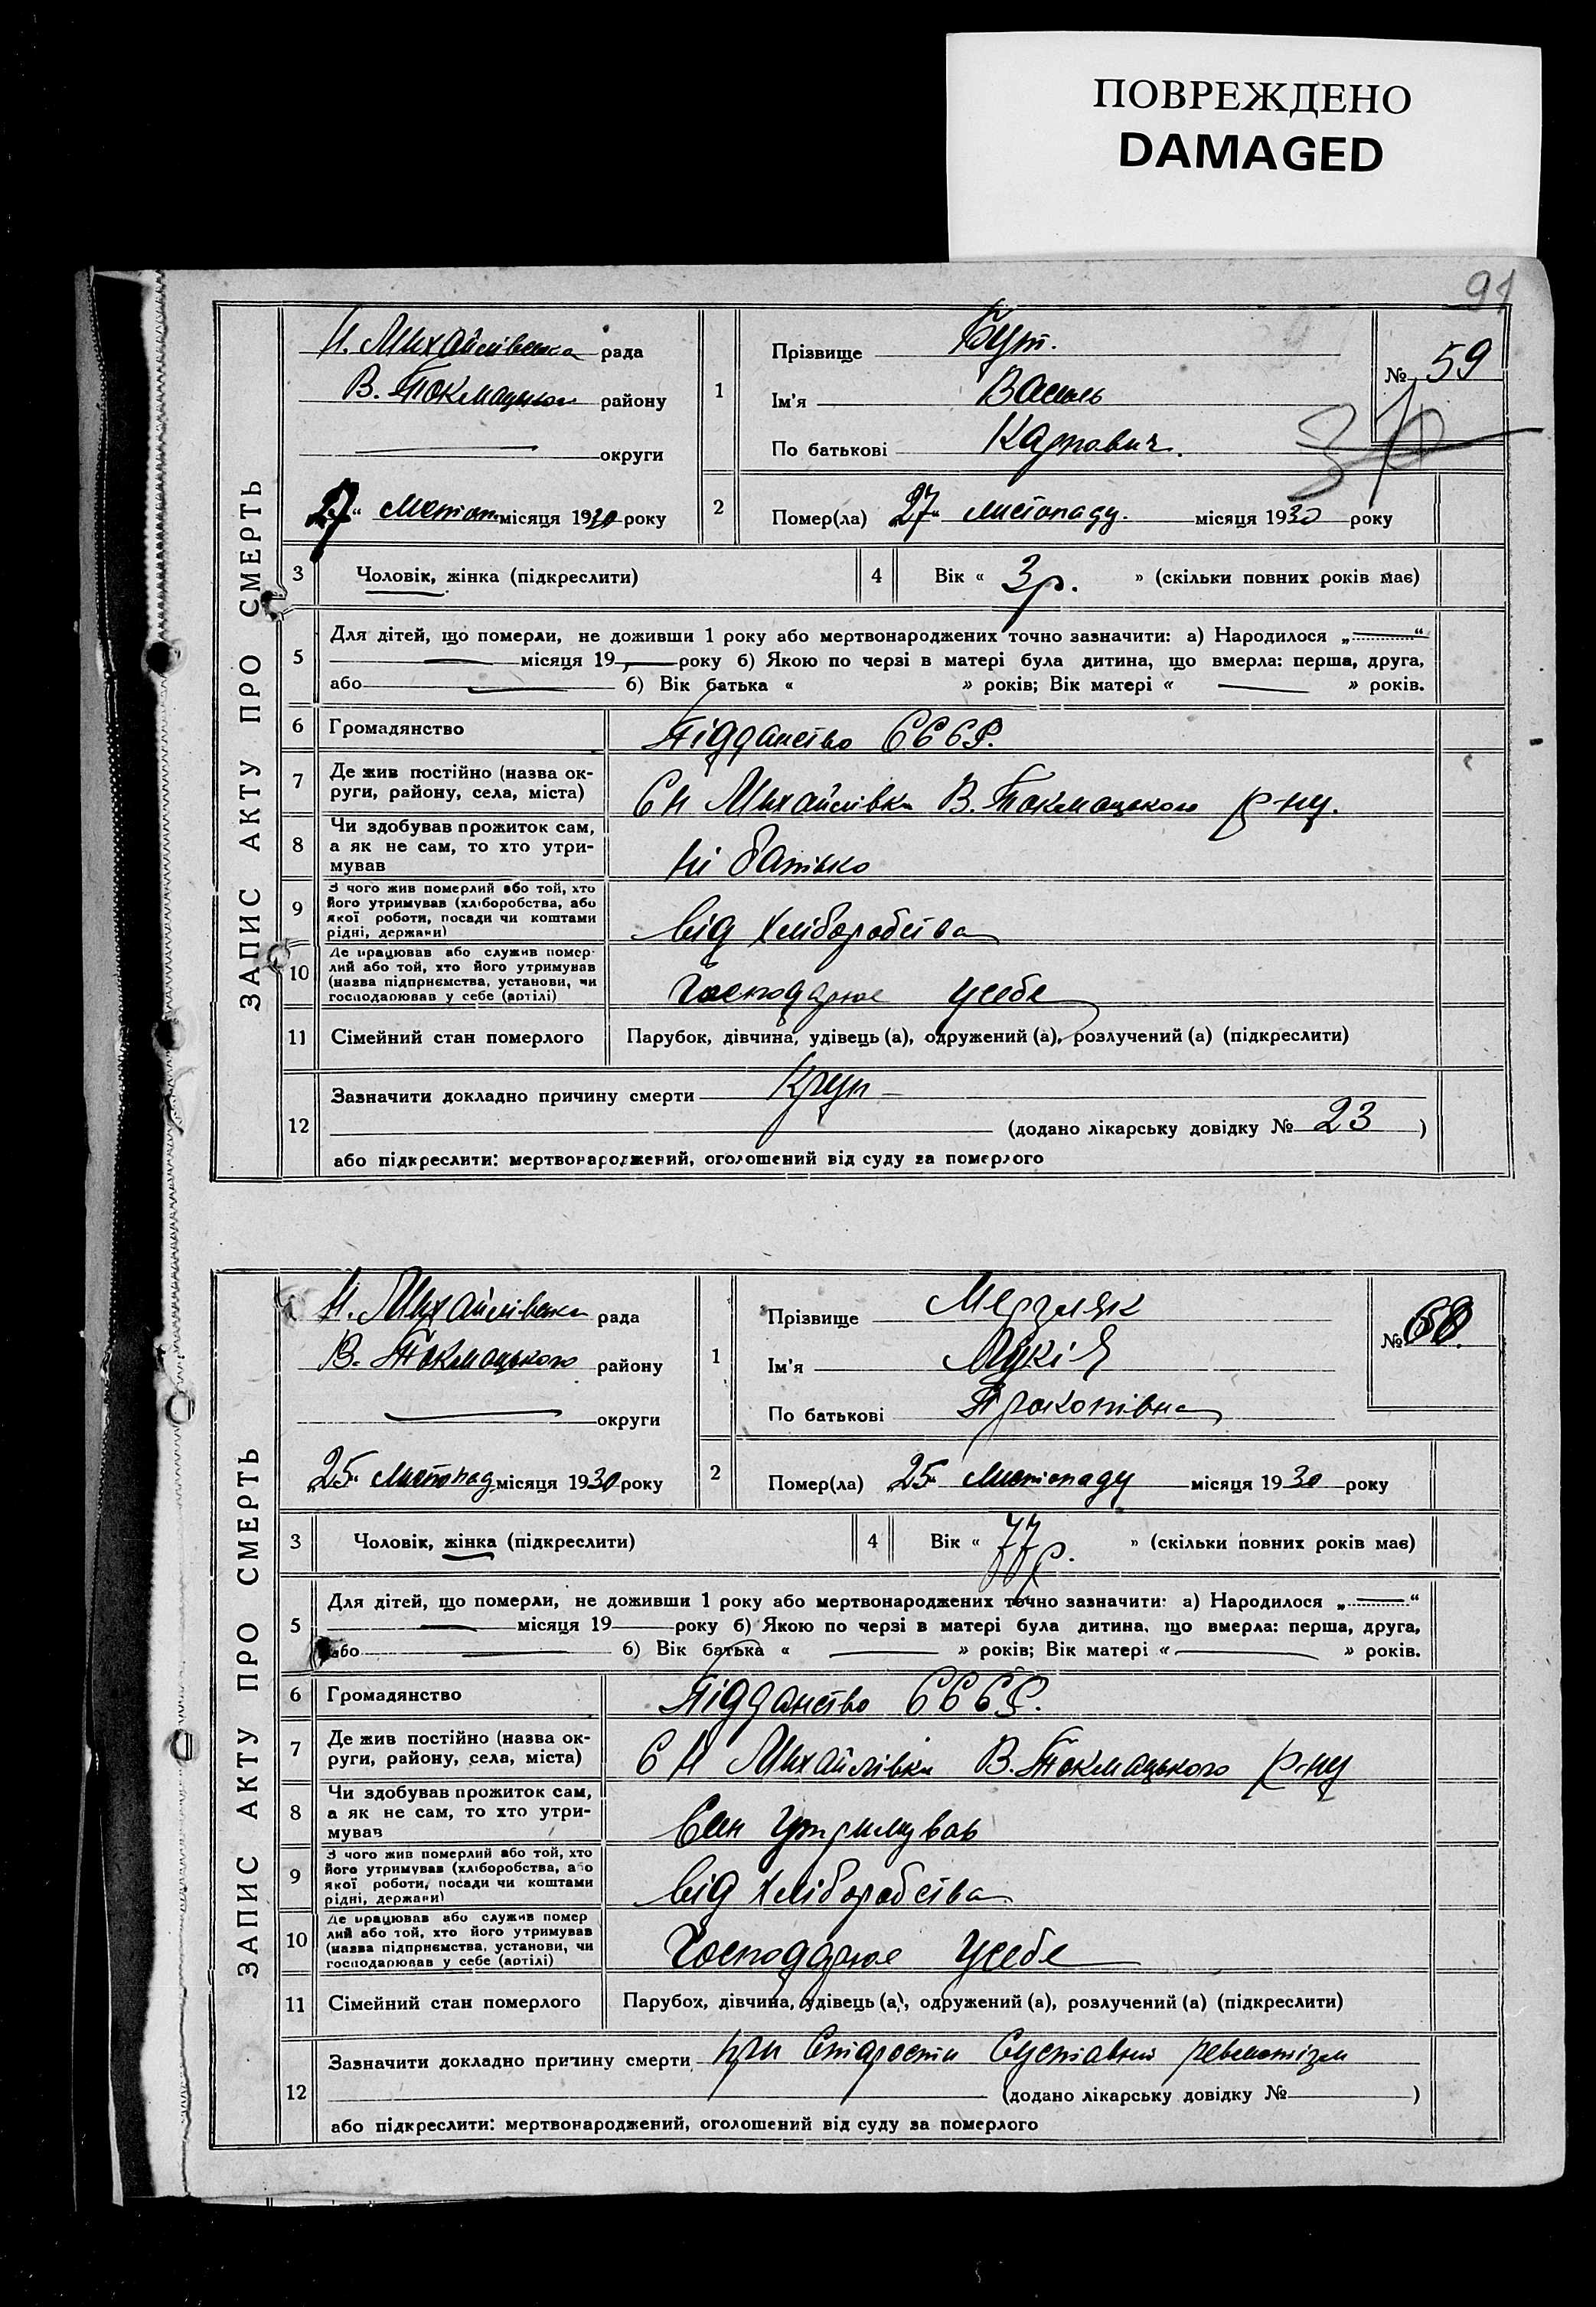 ПОВРЕЖДЕНО
DAMAGED
91
ЗАПИС АКТУ ПРО СМЕРТЬ
Н. Михайлівська рада
В. Токмацького району
округи
27 " Листоп місяця 1930 року
1
Прізвище Бут.
Ім'я Василь
По батькові Карпович.
№ 59
2
Помер(ла) 27 " листопаду. місяця 1930 року
3
Чоловік, жінка (підкреслити)
4
Вік « 3 р. » (скільки повних років має)
5
Для дітей, що померли, не доживши 1 року або мертвонароджених точно зазначити: а) Народилося „ “
місяця 19 року б) Якою по черзі в матері була дитина, що вмерла: перша, друга,
або б) Вік батька « » років; Вік матері « » років.
6
Громадянство
Підданство СССР.
7
Де жив постійно (назва ок-
руги, району, села, міста)
С Н Михайлівка В. Токмацького р-ну.
8
Чи здобував прожиток сам,
а як не сам, то хто утри-
мував
Ні батько
9
З чого жив померлий або той, хто
його утримував (хліборобства, або
якої роботи, посади чи коштами
рідні, держави)
від хліборобства
10
Де працював або служив помер-
лий або той, хто його утримував
(назва підприємства, установи, чи
господарював у себе (артілі)
Господарює усебе
11
Сімейний стан померлого
Парубок, дівчина, удівець (а), одружений (а), розлучений (а) (підкреслити)
12
Зазначити докладно причину смерти Круп
(додано лікарську довідку № 23 )
або підкреслити: мертвонароджений, оголошений від суду за померлого
ЗАПИС АКТУ ПРО СМЕРТЬ
Н. Михайлівська рада
В. Токмацького району
округи
„25 " Листопад місяця 1930 року
1
Прізвище Мерзляк
Ім'я Лукія
По батькові Прокопівна
№ 60.
2
Помер(ла) „25 " Листопаду місяця 1930 року
3
Чоловік, жінка (підкреслити)
4
Вік « 77 р. » (скільки повних років має)
5
Для дітей, що померли, не доживши 1 року або мертвонароджених точно зазначити: а) Народилося „ “
місяця 19 року б) Якою по черзі в матері була дитина, що вмерла: перша, друга,
або б) Вік батька « » років; Вік матері « » років.
6
Громадянство
Підданство СССР.
7
Де жив постійно (назва ок-
руги, району, села, міста)
С Н Михайлівка В. Токмацького р-ну
8
Чи здобував прожиток сам,
а як не сам, то хто утри-
мував
Син утримував
9
З чого жив померлий або той, хто
його утримував (хліборобства, або
якої роботи, посади чи коштами
рідні, держави)
від хліборобства
10
Де працював або служив помер
лий або той, хто його утримував
(назва підприємства, установи, чи
господарював у себе (артілі)
Господарює усебе
11
Сімейний стан померлого
Парубок, дівчина, удівець (а), одружений (а), розлучений (а) (підкреслити)
12
Зазначити докладно причину смерти при Старости Суставний ревматізм
(додано лікарську довідку № )
або підкреслити: мертвонароджений, оголошений від суду за померлого